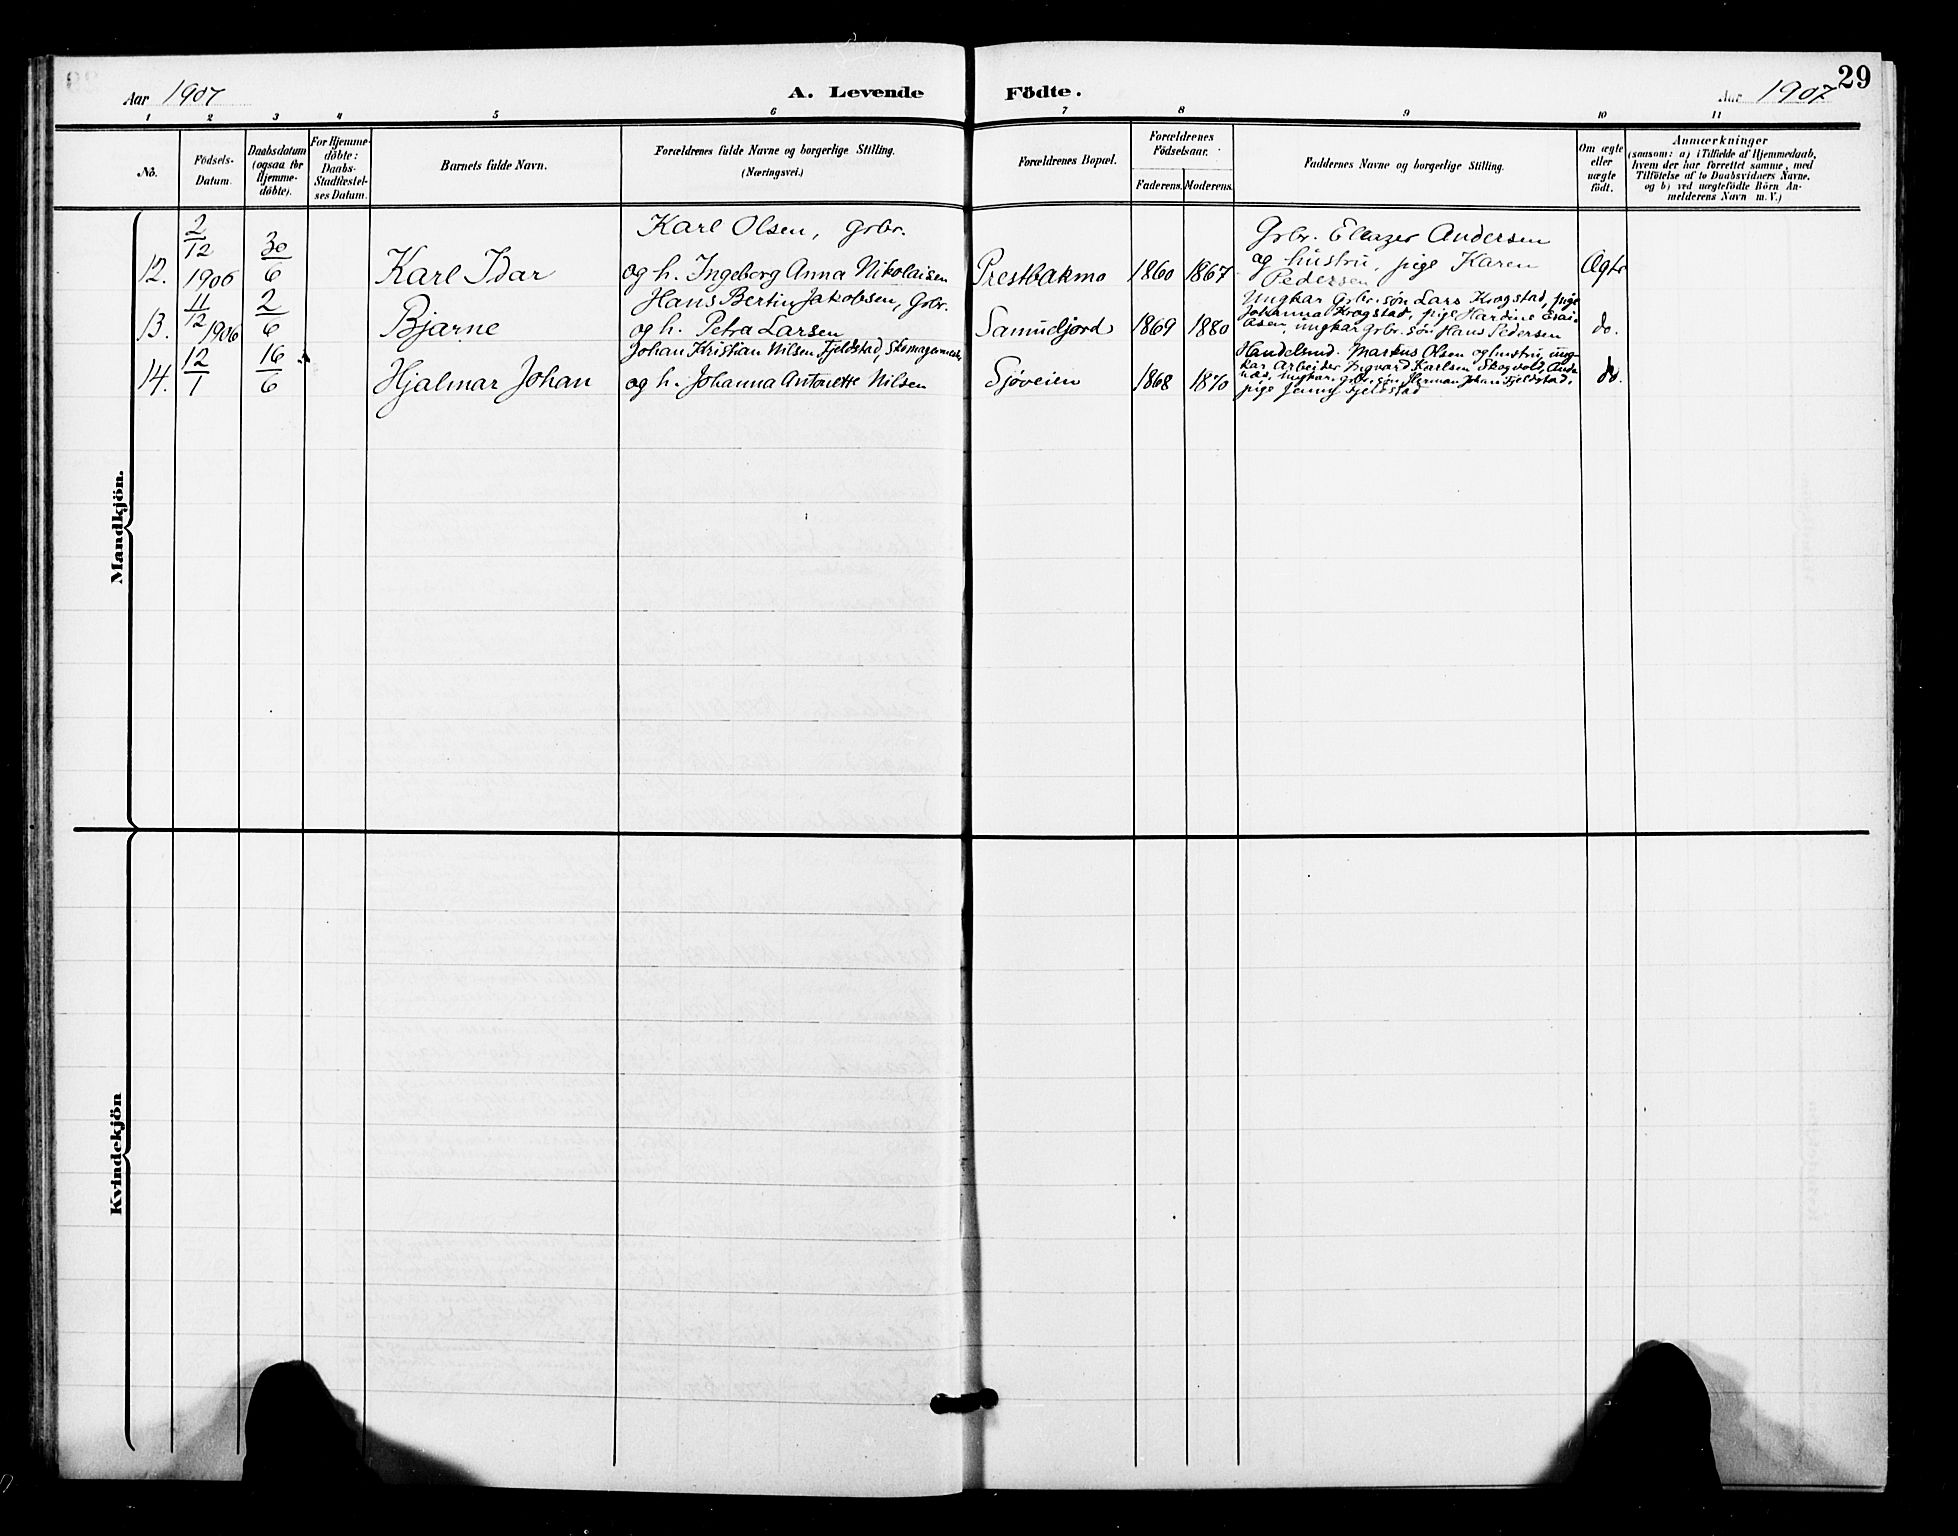 29
Aar 1907
A. Levende Födte.
Aar 1907
1 2 3 4 5 6 7 8 9 10 11
No.
Födsels-
Datum.
Daabsdatum
(ogsaa for
Hjemme-
döbte).
For Hjemme-
döbte:
Daabs-
Stadfæstel-
ses Datum.
Barnets fulde Navn.
Forældrenes fulde Navne og borgerlige Stilling.
(Næringsvei.)
Forældrenes Bopæl.
Forældrenes
Födselsaar.
Faderens. Moderens.
Faddernes Navne og borgerlige Stilling.
Om ægte
eller
uægte
födt.
Anmærkninger
(saasom: a) i Tilfælde af Hjemmedaab,
hvem der har forrettet samme, med
Tilföielse af to Daabsvidners Navne,
og b) ved uægtefödte Börn An-
melderens Navn m. V.)
Mandkjön.
12.
2/12
1906
30/6
Karl Idar
Karl Olsen, Grbr.
og h. Ingeborg Anna Nikolaisen
Prestbakmo
1860
1867
Grbr. Eleazer Andersen
og hustru, pige Karen
Pedersen
Ægte
13.
4/12 1906
2/6
Bjarne
Hans Bertin Jakobsen, Grbr.
og h. Petra Larsen
Samueljord
1869
1880
Ungkar Grbr.søn Lars Krogstad, pige
Johanna Krogstad, pige Hardine Esai-
asen, ungkar Grbr. søn Hans Pedersen
do.
14.
12/1
16/6
Hjalmar Johan
Johan Kristian Nilsen Fjeldstad, Skomagermester
og h. Johanna Antonette Nilsen
Sjøveien
1868
1870
Handelsmd. Markus Olsen og hustru, ung-
kar Arbeider Ingvard Karlsen Skogvold
ungkar grbr.søn Herman Johan Fjeldstad,
pige Jenny Fjeldstad
do.
Kvindekjön